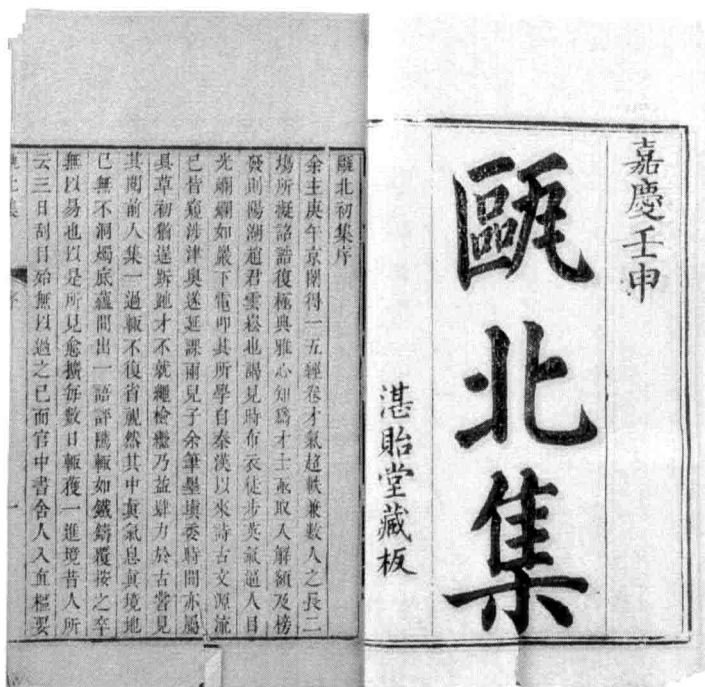 嘉慶壬申
甌北集
湛貽堂藏板
甌北初集序
余主庚午京闈得一五經卷才氣超軼兼數人之長二
場所擬詔誥復極典雅心知爲才士亟取入解額及榜
發則陽湖趙君雲崧也謁見時布衣徒步英氣逼人目
光爛爛如巖下電叩其所學自秦漢以來詩古文源流
已皆窺涉津奧遂延課兩兒子余筆墨填委時間亦屬
具草初猶逞跅跑才不就繩檢繼乃益肆力於古嘗見
其閱前人集一過輒不復省視然其中眞氣息眞境地
已無不洞燭底蘊間出一語評隲輒如鐵鑄覆按之卒
無以易也以是所見愈擴每數日輒獲一進境昔人所
云三日刮目殆無以過之已而官中書舍人入直樞要
甌北集
序
一